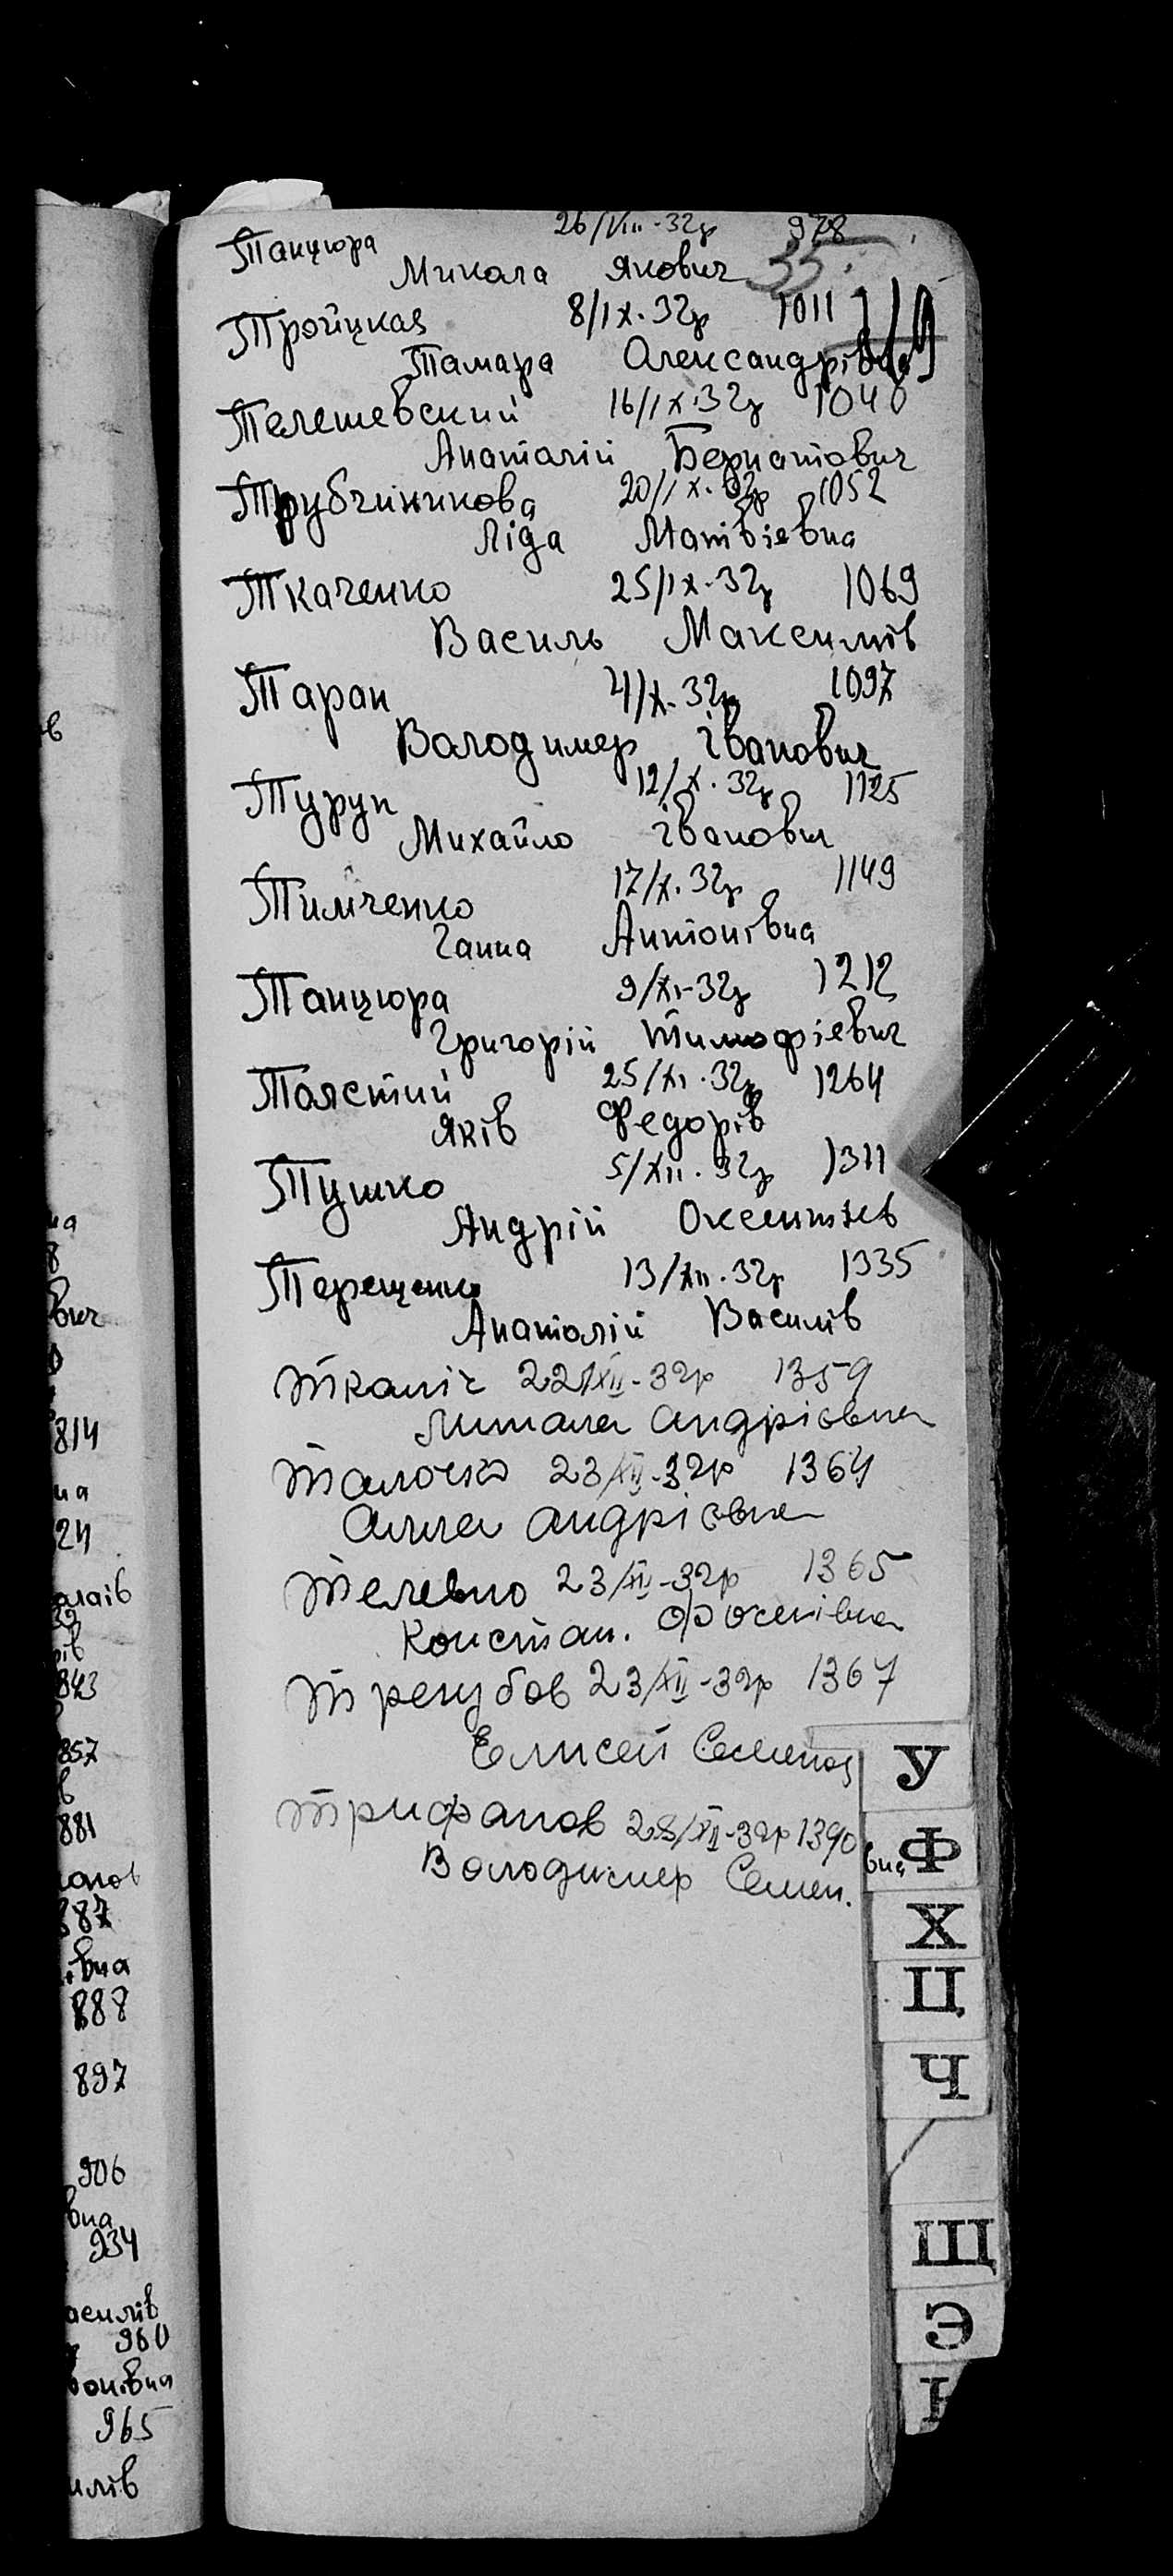 26/VIII-32р 978
Танцюра
Микола Якович 35.
Тройцкая 8/IX.32р 1011
Тамара Олександрівна
Телешевский 16/IX.32р 1040
Анатолій Бернатович
20/IX.32р 1052
Ліда Матвіевна
Ткаченко 25/IX.32р 1069
Василь Максимів
Таран 4/X.32р 1097
Володимер Іванович
Турун 12/X.32р 1125
Михайло Іванович
Тимченко 17/X.32р 1149
Ганна Антонівна
Танцюра 9/XI-32р 1212
Григорій Тимофіевич
Толстий 25/XI.32р 1264
Яків Федорів
Тушко 5/XII.32р 1311
Андрій
Терещенко 13/XII.32р 1335
Анатолій Василів
Ткаліч 22/XII-32р 1359
Андріовна
Талочка 23/XII-32р 1364
Алла Андріовна
23/XII-32р 1365
Констан.
Трегубов 23/XII-32р 1367
Елисей Семенов
Трифанов 28/XII-32р 1390
Володимер Семен.
вна
У
Ф
Х
Ц
Ч
Щ
Э
в
на
8
вич
814
на
24
лаів
843
857
в
881
887
вна
888
897
906
вна
934
асилів
960
онівна
965
илів